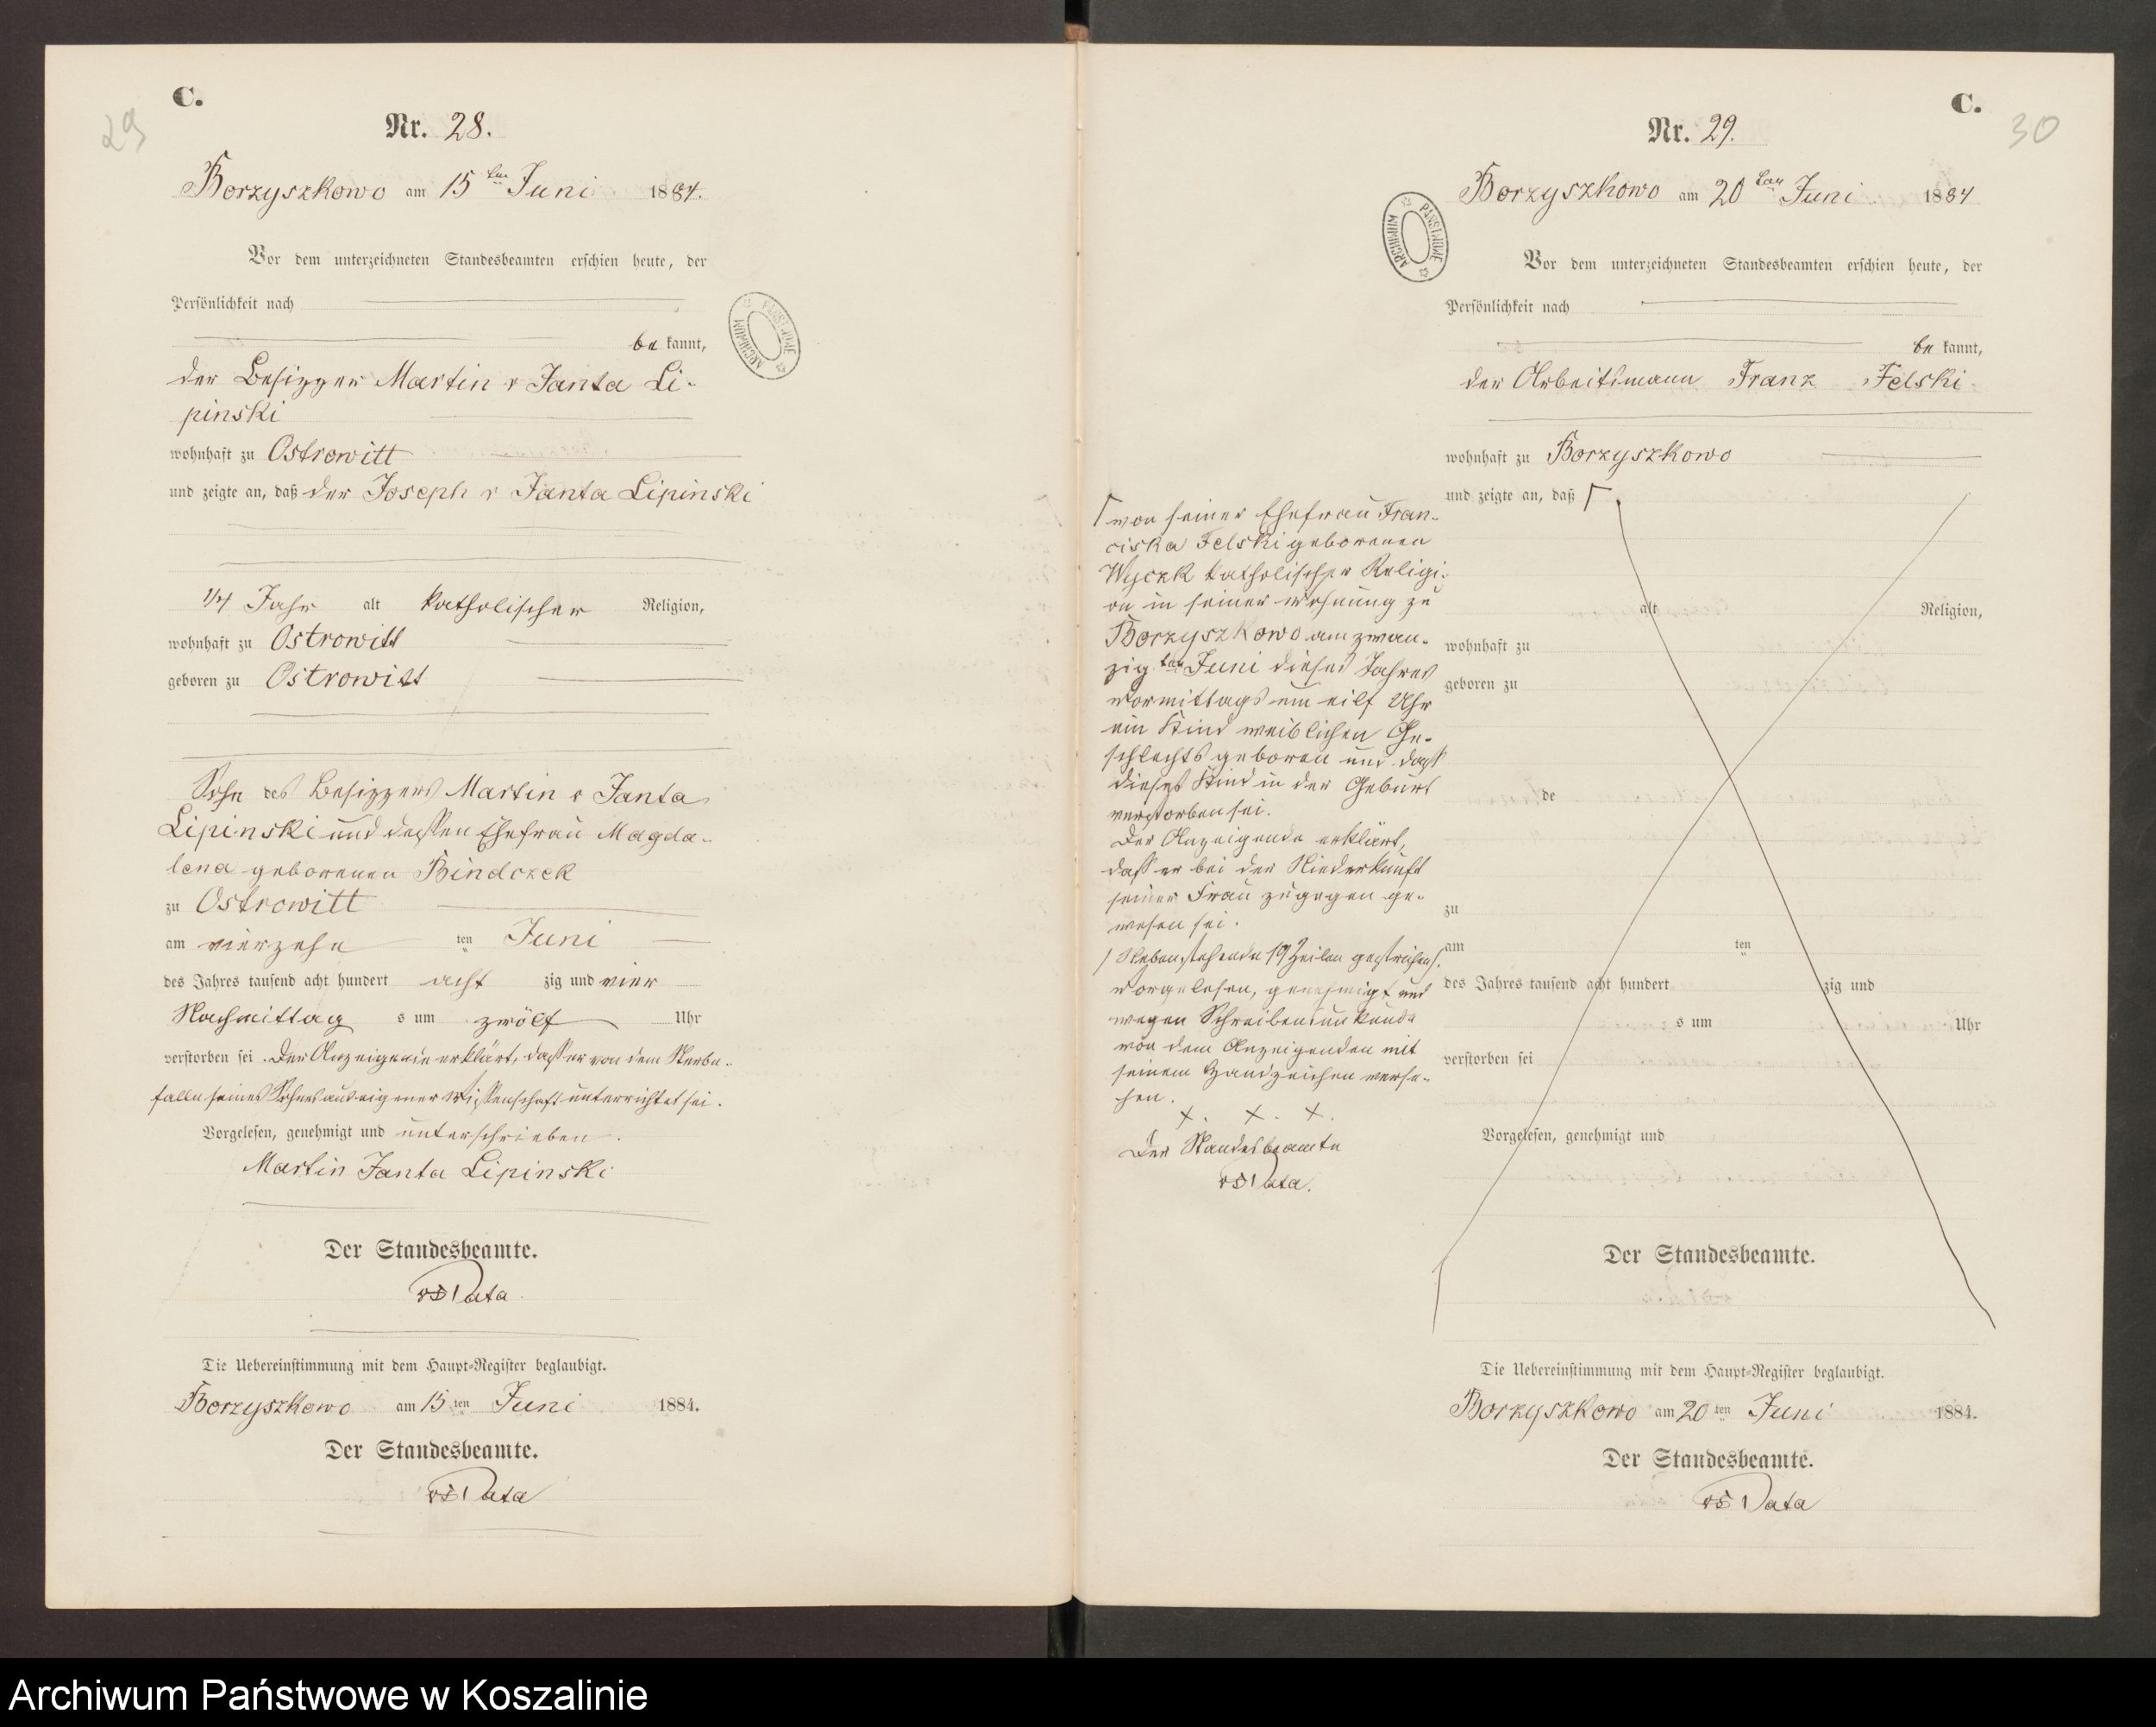 C.
29
Nr. 28.
Borzyszkowo am 15ten Juni 1884.
Vor dem unterzeichneten Standesbeamten erschien heute, der
Persönlichkeit nach
be kannt,
der Besizzer Martin v Janta Li-
pinski
wohnhaft zu Ostrowitt
und zeigte an, daß der Joseph v Janta Lipinski
1/4 Jahr alt katholischer Religion,
wohnhaft zu Ostrowitt
geboren zu Ostrowitt
Sohn des Besizzers Martin v Janta
Lipinski und dessen Ehefrau Magda-
lena geborenen Bindczek
zu Ostrowitt
am vierzehn ten Juni
des Jahres tausend acht hundert acht zig und vier
Nachmittag s um zwölf Uhr
verstorben sei. Der Anzeigende erklärt, dass er von dem Sterbe-
falle seines Sohnes aus eigener Wissenschaft unterrichtet sei.
Vorgelesen, genehmigt und unterschrieben.
Martin Janta Lipinski
Der Standesbeamte.
Data
Die Uebereinstimmung mit dem Haupt-Register beglaubigt.
Borzyszkowo am 15 ten Juni 1884.
Der Standesbeamte.
Data
ARCHIWUM PAŃSTWOWE
C.
30
Nr. 29.
Borzyszkowo am 20ten Juni 1884
ARCHIWUM PAŃSTWOWE
Vor dem unterzeichneten Standesbeamten erschien heute, der
Persönlichkeit nach
be kannt,
der Arbeitsmann Franz Felski
wohnhaft zu Borzyszkowo
und zeigte an, daß Γ
Γ von seiner Ehefrau Fran-
ciska Felski geborenen
Wyczk katholischer Religi-
on in seiner Wohnung zu
Borzyszkowo am zwan-
zig ten Juni dieses Jahres
Vormittags um eilf Uhr
ein Kind weiblichen Ge-
schlechts geboren und dass
dieses Kind in der Geburt
verstorben sei.
Der Anzeigende erklärt,
dass er bei der Niederkunft
seiner Frau zugegen ge-
wesen sei.
/Nebenstehende 19 Zeilen gestrichen/.
Vorgelesen, genehmigt und
wegen Schreibensunkunde
von dem Anzeigenden mit
seinem Handzeichen verse-
hen.
x. x. x.
Der Standesbeamte
Data.
alt Religion,
wohnhaft zu
geboren zu
de
zu
am ten
des Jahres tausend acht hundert zig und
s um Uhr
verstorben sei
Vorgelesen, genehmigt und
Der Standesbeamte.
Die Uebereinstimmung mit dem Haupt-Register beglaubigt.
Borzyszkowo am 20 ten Juni 1884.
Der Standesbeamte.
Data
Archiwum Państwowe w Koszalinie